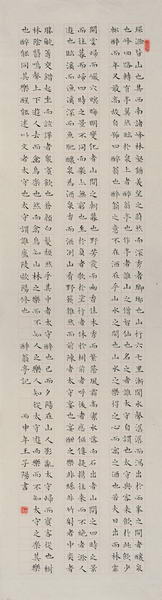 環滁皆山也其西南諸峰林壑尤美望之蔚然而深秀者瑯琊也山行六七里漸聞水聲潺潺而瀉於兩峰之間者釀泉
也峰回路轉有亭翼然臨於泉上者醉翁亭也作亭者誰山之僧智仙也名之者誰太守自謂也太守與客來飲於此飲少
輒醉而年又最高故自號曰醉翁也醉翁之意不在酒在乎山水之間也山水之樂得之心而寓之酒也若夫日出而林霏
開雲歸而巖穴暝晦明變化者山間之朝暮也野芳發而幽香佳木秀而繁陰風霜高潔水落而石出者山間之四時也朝
而往暮而歸四時之景不同而樂亦無窮也至於負者歌於途行者休於樹前者呼後者應傴僂提攜往來而不絕者滁人
遊也臨溪而漁溪深而魚肥釀泉為酒泉香而酒洌山肴野蔌雜然而前陳者太守宴也宴酣之樂非絲非竹射者中弈者
勝觥籌交錯起坐而諠譁者眾賓歡也蒼顏白髮頹然乎其中者太守醉也已而夕陽在山人影散亂太守歸而賓客從也樹
林陰翳鳴聲上下遊人去而禽鳥樂也然而禽鳥知山林之樂而不知人之樂人知從太守遊而樂而不知太守之樂其樂
也醉能同其樂醒能述以文者太守也太守謂誰廬陵歐陽修也
醉翁亭記 丙申年王子陽書